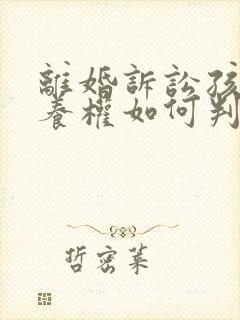 離婚訴訟孩
養權如何判
哲密菜